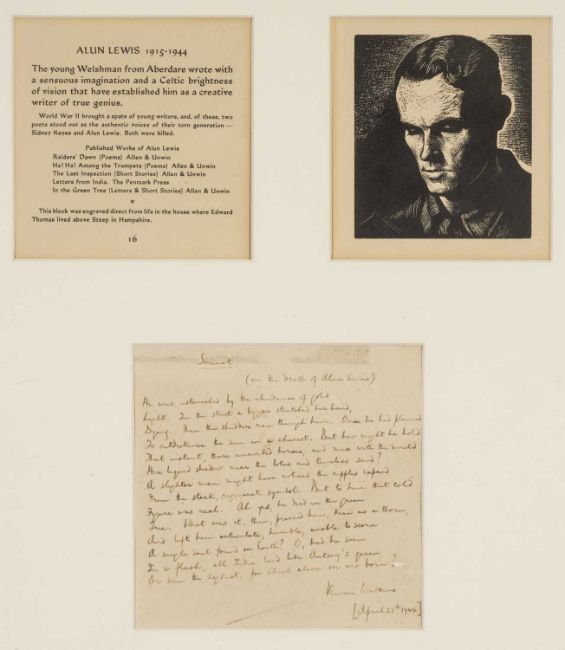 ALUN LEWIS 1915-1944
The young Welshman from Aberdare wrote with
a sensuous imagination and a Celtic brightness
of vision that have established him as a creative
writer of true genius.
World War II brought a spate of young writers, and, of these, two
poets stood out as the authentic voices of their torn generation —
Sidney Keyes and Alun Lewis. Both were killed.
Published Works of Alun Lewis
Raiders' Dawn (Poems) Allen & Unwin
Ha! Ha! Among the Trumpets (Poems) Allen & Unwin
The Last Inspection (Short Stories) Allen & Unwin
Letters from India. The Penmark Press
In the Green Tree (Letters & Short Stories) Allen & Unwin
*
This block was engraved direct from life in the house where Edward
Thomas lived above Steep in Hampshire.
16
Sonnet
(on the death of Alun Lewis)
He was astonished by the abundance of gold
Light. In the street a beggar stretched her hand,
Dying. Then the shudder ran through him. Once he had planned
To outdistance the sun in a chariot. But how might he hold
That instant, those horses, and with the
Her legend shadow near the lotus and timeless sand?
A slighter man might have noticed the ripples expand
From the stark, regenerate symbol. But to him that cold
Figure was real. Ah yes, he died in the green
Tree. What was it, then, pierced him, keen as a thorn,
And left him articulate, humble, unable to scorn
A single soul found on Earth? O, had he seen
In a flash, all India laid like Antony's queen,
Or seen the highest, for which alone we are born?
Vernon Watkins
[April 28th 1944]